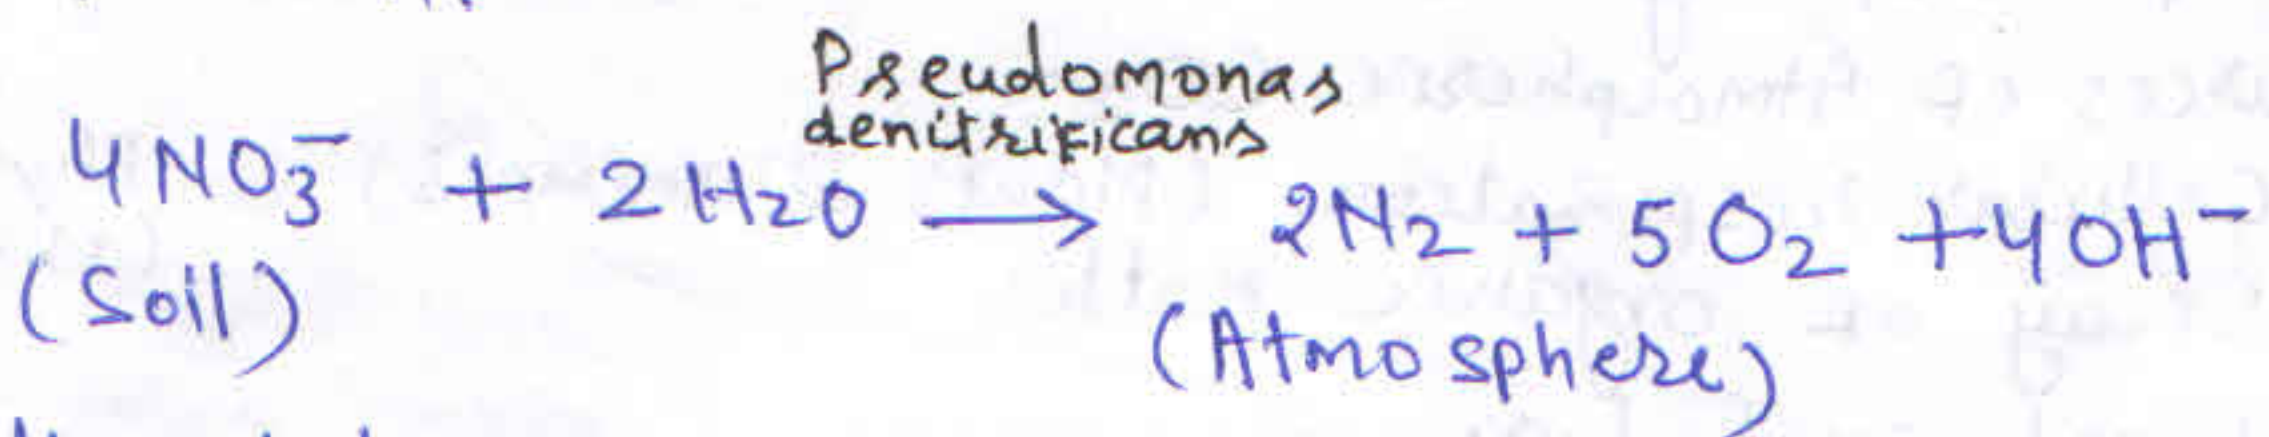 Pseudomonas
denitrificans
4NO₃⁻ + 2H₂O ⟶ 2N₂ + 5O₂ + 4OH⁻
(Soil)
(Atmosphere)